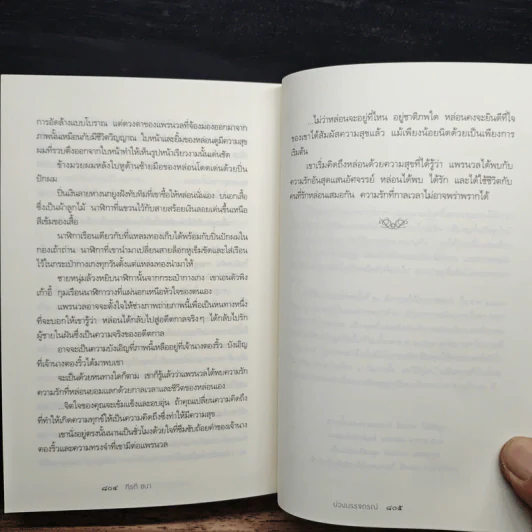 การอัดล้างแบบโบราณ แต่ดวงตาของแพรนวลที่จ้องมองออกมาจาก
ภาพนั้นเหมือนกับมีชีวิตวิญญาณ ใบหน้าและยิ้มของหล่อนดูมีความสุข
ผมที่รวบตึงออกจากใบหน้าทำให้เห็นรูปหน้าเรียวงามนั้นเด่นชัด
ข้างมวยผมหลังใบหูด้านซ้ายมือของหล่อนโดดเด่นด้วยปิ่น
ปักผม
ปิ่นเงินลายหางนกยูงฝังทับทิมที่เขาซื้อให้หล่อนนั่นเอง บนอกเสื้อ
ซึ่งเป็นผ้าลูกไม้ นาฬิกาที่แขวนไว้กับสายสร้อยเงินลอยเด่นขึ้นเหนือ
สีเข้มของเสื้อ
นาฬิกาเรือนเดียวกับที่แหลมทองเก็บได้พร้อมกับปิ่นปักผมใน
กองเถ้าถ่าน นาฬิกาที่เขานำมาเปลี่ยนสายสือกหูเข็มขัดและใส่เรือน
ไว้ในกระเป๋ากางเกงทุกวันตั้งแต่แหลมทองนำมาให้
ชายหนุ่มล้วงหยิบนาฬิกานั้นจากกระเป๋ากางเกง เขาเอนตัวพิง
เก้าอี้ กุมเรือนนาฬิกาวางที่แผ่นอกเหนือหัวใจของตนเอง
แพรนวลอาจจะตั้งใจให้ช่างภาพถ่ายภาพนี้เพื่อเป็นหนทางหนึ่ง
ที่จะบอกให้เขารู้ว่า หล่อนได้กลับไปสู่อดีตกาลจริงๆ ได้กลับไปรัก
ผู้ชายในฝันซึ่งเป็นความจริงของอดีตกาล
อาจจะเป็นความบังเอิญที่ภาพนี้เหลืออยู่ที่เจ้านางตองริ้ว บังเอิญ
ที่เจ้านางตองริ้วได้มาพบเขา
จะเป็นด้วยหนทางใดก็ตาม เขาก็รู้แล้วว่าแพรนวลได้พบความรัก
ความรักที่หล่อนยอมแลกด้วยกาลเวลาและชีวิตของหล่อนเอง
...จิตใจของคุณจะเข้มแข็งและอบอุ่น ถ้าคุณเปลี่ยนความคิดถึง
ที่ทำให้เกิดความทุกข์ให้เป็นความคิดถึงซึ่งทำให้มีความสุข...
เขานั่งอยู่ตรงนั้นนานเป็นชั่วโมงด้วยใจที่ซึมซับถ้อยคำของเจ้านาง
ตองริ้วและความทรงจำที่เขามีต่อแพรนวล
๘๐๔ กิ่งฉัตร
...ไม่ว่าหล่อนจะอยู่ที่ไหน อยู่ชาติภพใด หล่อนคงจะยินดีที่ใจ
ของเขาได้สัมผัสความสุขแล้ว แม้เพียงน้อยนิดด้วยเป็นเพียงการ
เริ่มต้น
เขาเริ่มคิดถึงหล่อนด้วยความสุขที่ได้รู้ว่า แพรนวลได้พบกับ
ความรักอันสุดแสนอัศจรรย์ หล่อนได้พบ ได้รัก และได้ใช้ชีวิตกับ
คนที่รักหล่อนเสมอกัน ความรักที่กาลเวลาไม่อาจพร่าพรากได้
บ่วงบรรจถรณ์ ๘๐๕